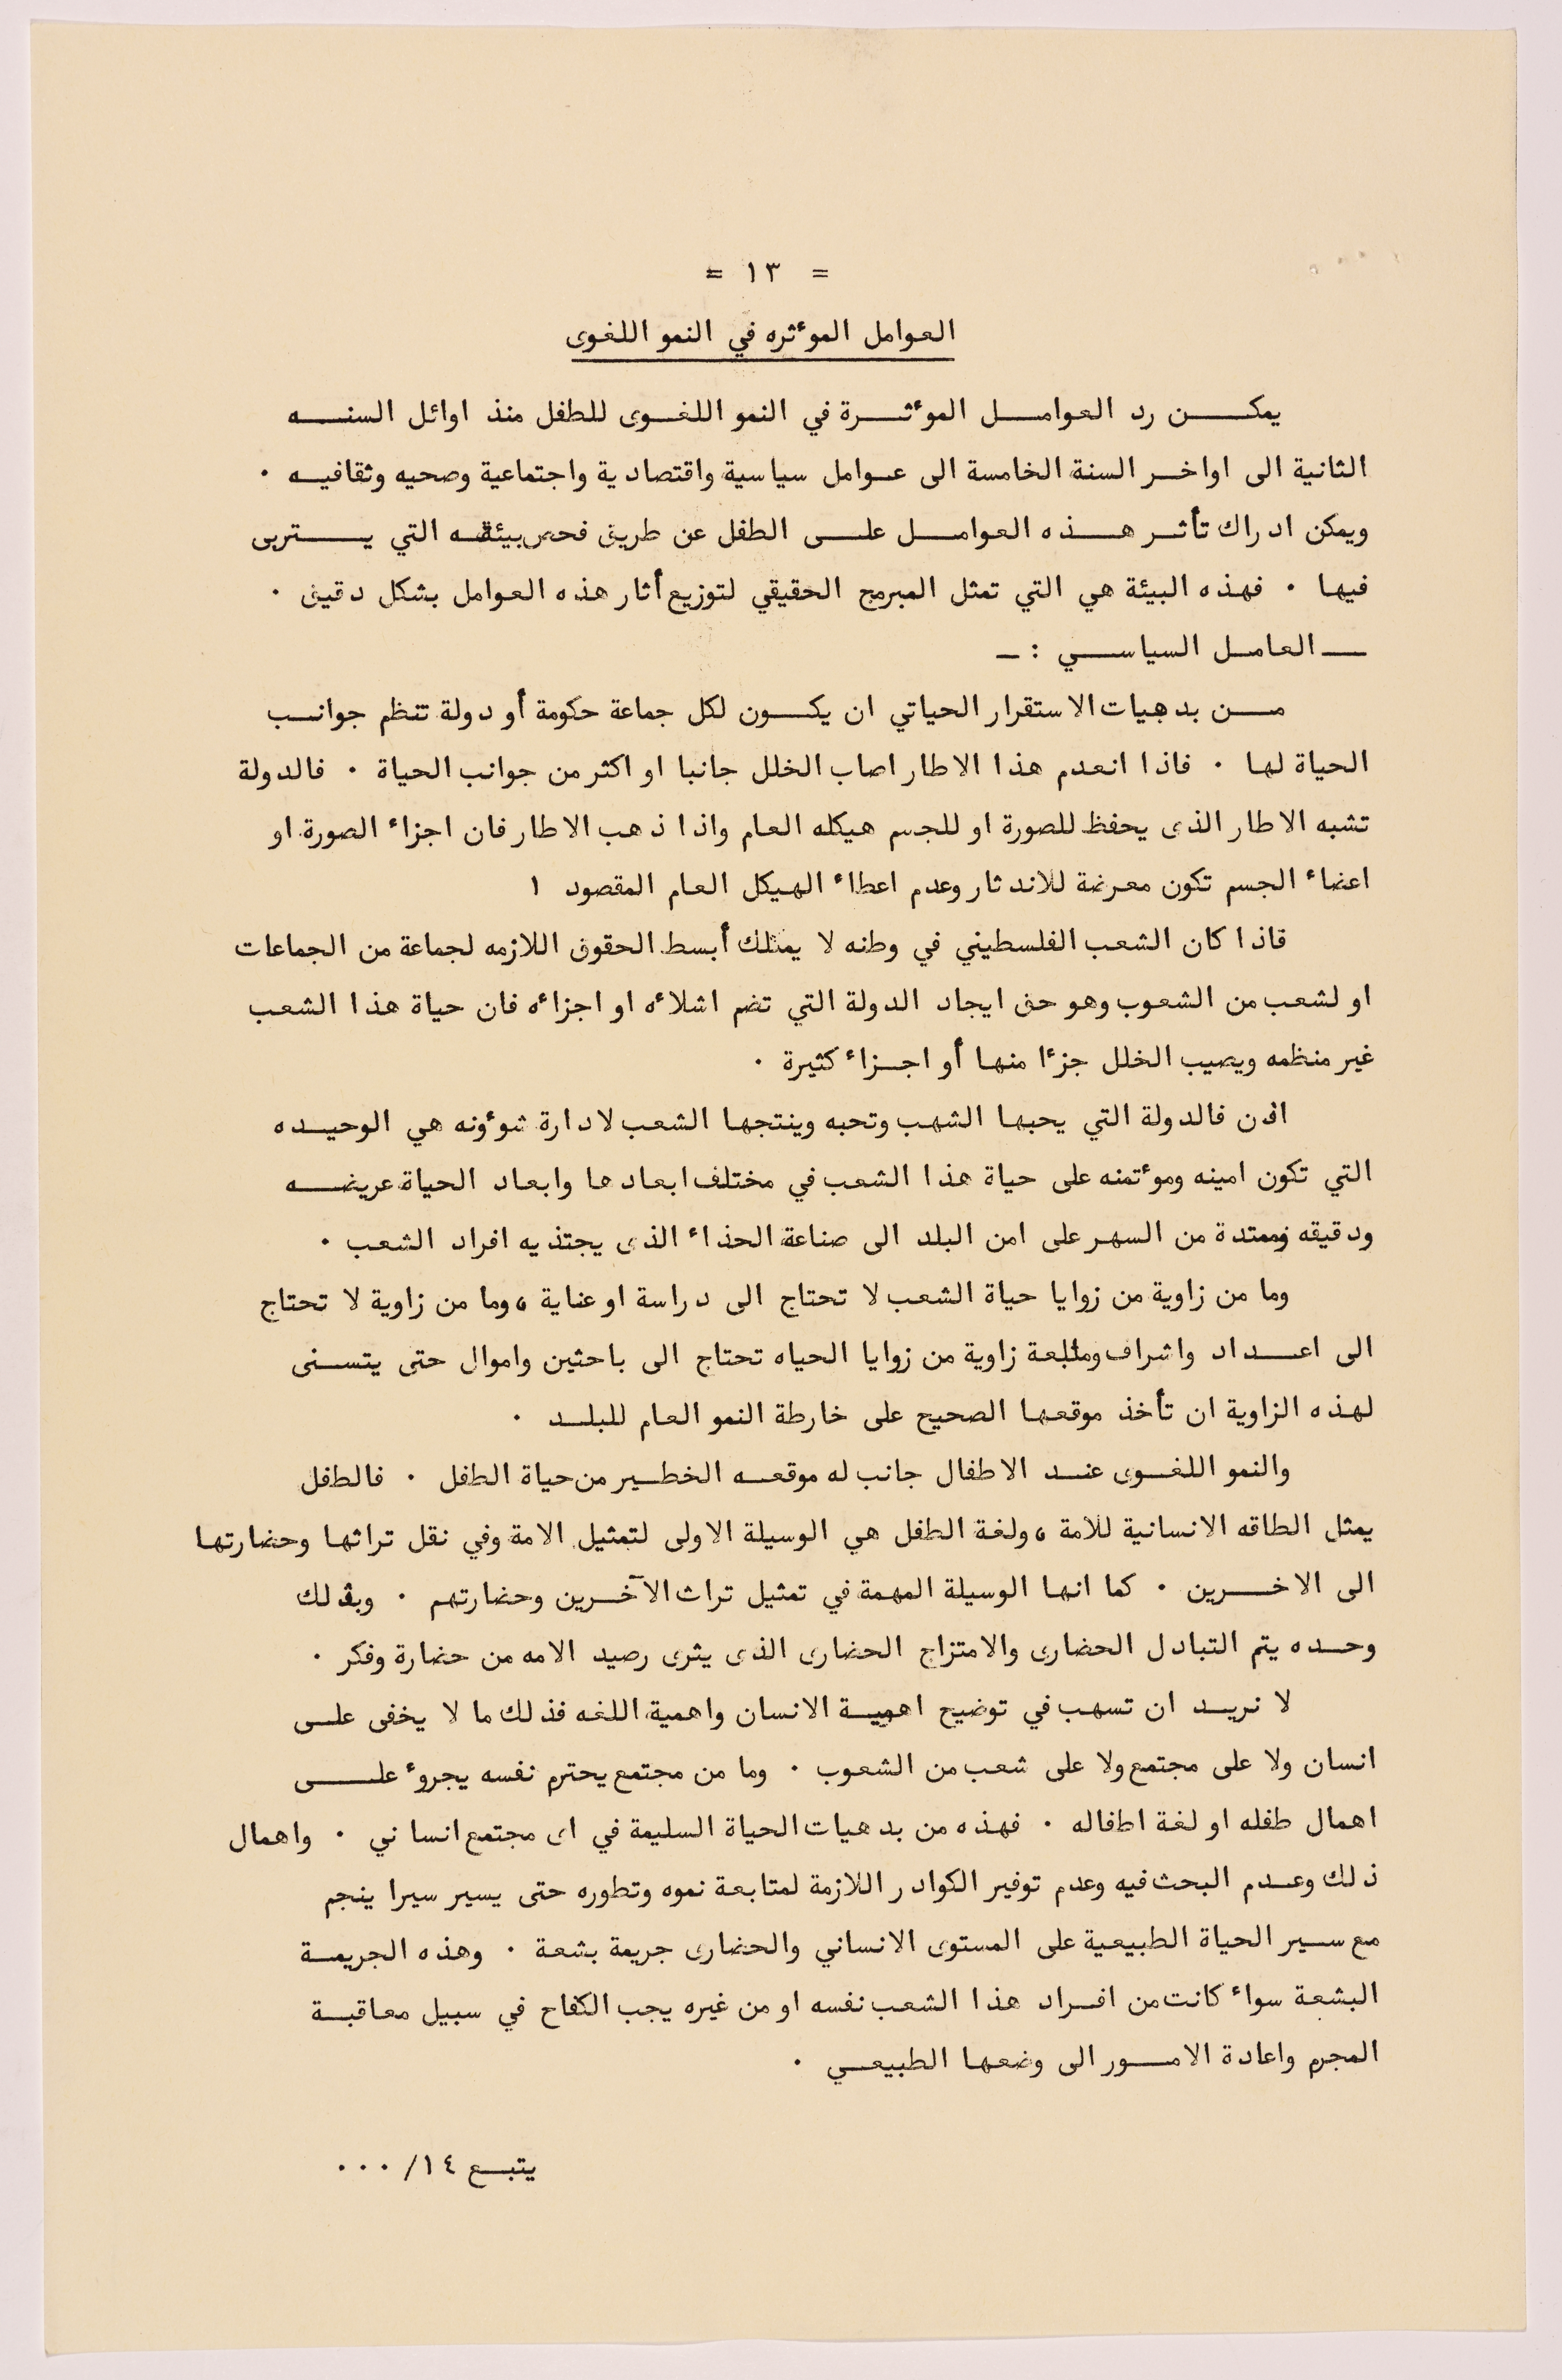 = ١٣ =
العوامل الموٴثره في النمو اللغوى
يمكن رد العوامل الموٴثرة في النمو اللغوى للطفل منذ اوائل السنه
الثانية الى اواخر السنة الخامسة الى عوامل سياسية واقتصادية واجتماعية وصحيه وثقافيه .
ويمكن ادراك تأثر هذه العوامل على الطفل عن طريق فحص بيئته التي يتربى
فيها . فهذه البيئة هي التي تمثل المبرمج الحقيقي لتوزيع أثار هذه العوامل بشكل دقيق .
ــ العامل السياسي : ـ
من بدهيات الاستقرار الحياتي ان يكون لكل جماعة حكومة أو دولة تنظم جوانب
الحياة لها . فاذا انعدم هذا الاطار اصاب الخلل جانبا او اكثر من جوانب الحياة . فالدولة
تشبه الاطار الذى يحفظ للصورة او للجسم هيكله العام واذا ذهب الاطار فان اجزاء الصورة او
اعضاء الجسم تكون معرضة للاندثار وعدم اعطاء الهيكل العام المقصود ١
فاذا كان الشعب الفلسطيني في وطنه لا يمتلك أبسط الحقوق اللازمه لجماعة من الجماعات
او لشعب من الشعوب وهو حق ايجاد الدولة التي تضم اشلاءه او اجزاءه فان حياة هذا الشعب
غير منظمه ويصيب الخلل جزءا منها أو اجزاء كثيرة .
اذن فالدولة التي يحبها الشهب وتحبه وينتجها الشعب لادارة شوٴونه هي الوحيده
التي تكون امينه وموٴتمنه على حياة هذا الشعب في مختلف ابعادها وابعاد الحياة عريضه
ودقيقه وممتدة من السهر على امن البلد الى صناعة الحذاء الذى يجتذيه افراد الشعب .
وما من زاوية من زوايا حياة الشعب لا تحتاج الى دراسة او عناية ، وما من زاوية لا تحتاج
الى اعداد واشراف ومتابعة زاوية من زوايا الحياه تحتاج الى باحثين واموال حتى يتسنى
لهذه الزاوية ان تأخذ موقعها الصحيح على خارطة النمو العام للبلد .
والنمو اللغوى عند الاطفال جانب له موقعه الخطير من حياة الطفل . فالطفل
يمثل الطاقه الانسانية للامة ، ولغة الطفل هي الوسيلة الاولى لتمثيل الامة وفي نقل تراثها وحضارتها
الى الاخرين . كما انها الوسيلة المهمة في تمثيل تراث الآخرين وحضارتهم . وبذلك
وحده يتم التبادل الحضارى والامتزاج الحضارى الذى يثرى رصيد الامه من حضارة وفكر .
لا نريد ان تسهب في توضيح اهمية الانسان واهمية اللغه فذلك ما لا يخفى على
انسان ولا على مجتمع ولا على شعب من الشعوب . وما من مجتمع يحترم نفسه يجروٴ على
اهمال طفله او لغة اطفاله . فهذه من بدهيات الحياة السليمة في اى مجتمع انساني . واهمال
ذلك وعدم البحث فيه وعدم توفير الكوادر اللازمة لمتابعة نموه وتطوره حتى يسير سيرا ينجم
مع سير الحياة الطبيعية على المستوى الانساني والحضارى جريمة بشعة . وهذه الجريمة
البشعة سواء كانت من افراد هذا الشعب نفسه او من غيره يجب الكفاح في سبيل معاقبة
المجرم واعادة الامور الى وضعها الطبيعي .
يتبع ١٤/ ...